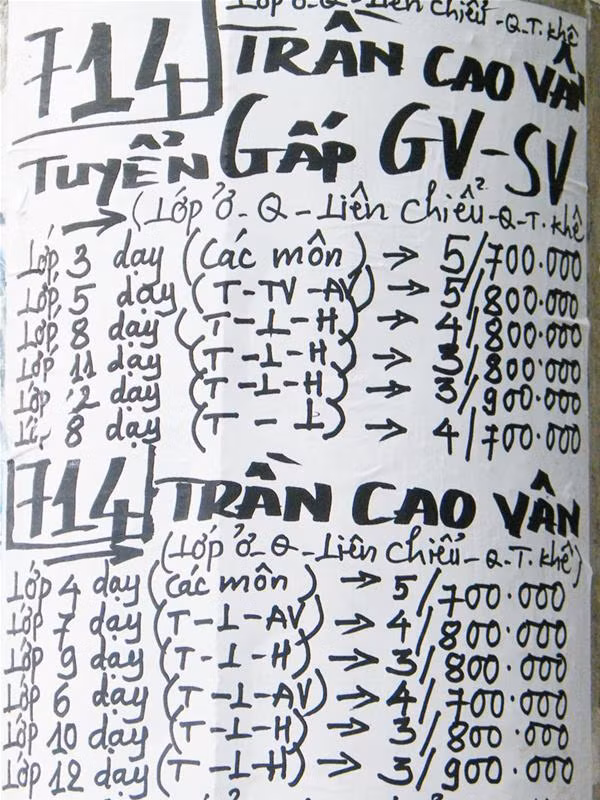 Lớp ở-Q-Liên Chiểu-Q-T.Khê
714 TRẦN CAO VÂN
TUYỂN GẤP GV-SV
(Lớp ở-Q-Liên Chiểu-Q-T.Khê
Lớp 3 dạy (Các môn) → 5/700.000
Lớp 5 dạy (T-TV-AV) → 5/800.000
Lớp 8 dạy (T-L-H) → 4/800.000
Lớp 11 dạy (T-L-H) → 3/800.000
Lớp 12 dạy (T-L-H) → 3/900.000
Lớp 8 dạy (T-L) → 4/700.000
714 TRẦN CAO VÂN
(Lớp ở-Q-Liên Chiểu-Q-T.Khê)
Lớp 4 dạy (Các môn) → 5/700.000
Lớp 7 dạy (T-L-AV) → 4/800.000
Lớp 9 dạy (T-L-H) → 3/800.000
Lớp 6 dạy (T-L-AV) → 4/700.000
Lớp 10 dạy (T-L-H) → 3/800.000
Lớp 12 dạy (T-L-H) → 3/900.000